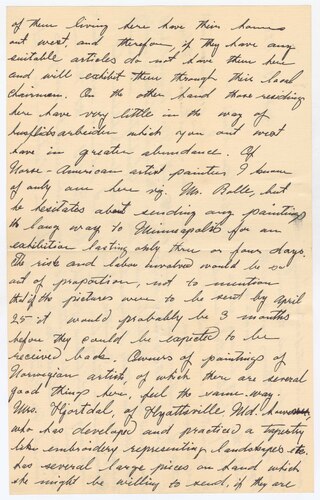 of them living here have their homes
out west, and therefore, if they have any
suitable articles do not have them here
and will exhibit them through their local
chairman. On the other hand those residing
here have very little in the way of
husflidsarbeider which you out west
have in greater abundance. Of
Norse-American artist painters I know
of only one here viz. Mr. Bolle, but
he hesitates about sending any paintings
the long way to Minneapolis for an
exhibition lasting only three or four days.
The risk and labor involved would be so
out of proportion, not to mention
that if the pictures were to be sent by April
25 it would probably be 3 months
before they could be expected to be
received back. Owners of paintings of
Norwegian artists, of which there are several
good things here, feel the same way.
Mrs. Hjortdal, of Hyattsville Md.
who has developed and practiced a tapestry
like embroidery representing landscapes etc.
has several large pieces on hand which
she might be willing to send, if they are